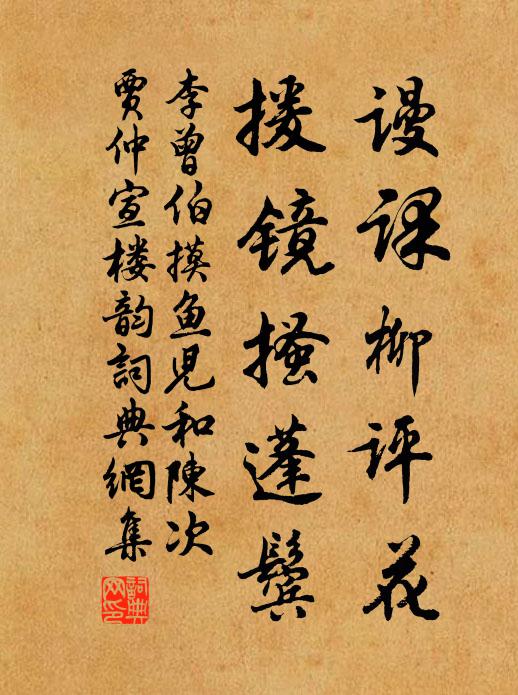 谩课柳评花
援镜搔蓬鬓
李曾伯摸鱼儿和陈次
贾仲宣楼韵詞典網集
詞典網印